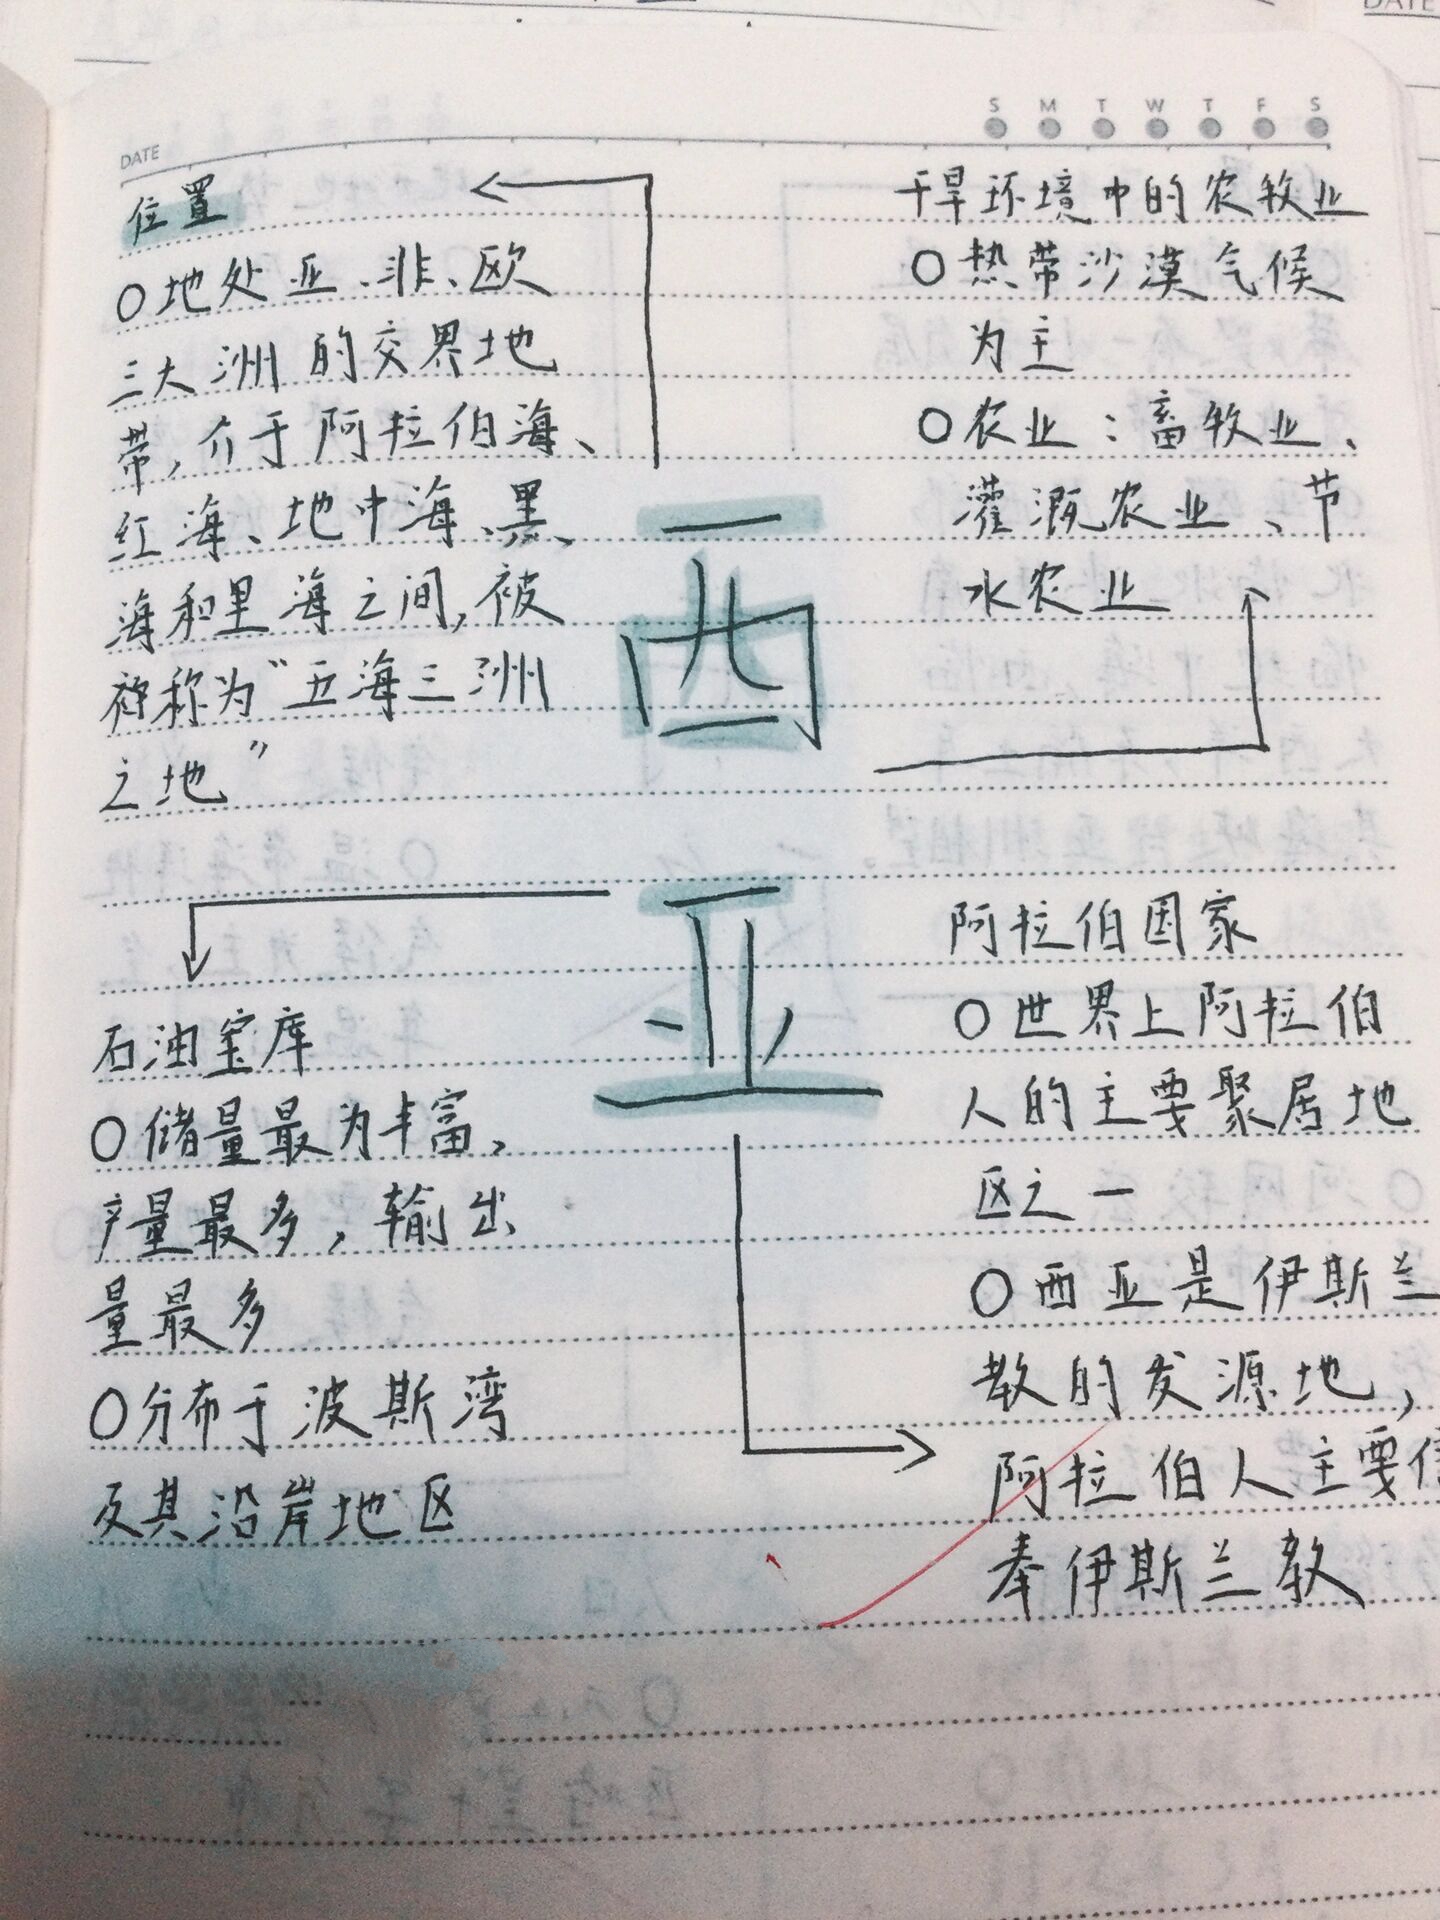 DATE
S M T W T F S
位置
○地处亚、非、欧
三大洲的交界地
带,介于阿拉伯海、
红海、地中海、黑
海和里海之间,被
被称为"五海三洲
之地"
干旱环境中的农牧业
○热带沙漠气候
为主
○农业:畜牧业、
灌溉农业、节
水农业
西
亚
石油宝库
○储量最为丰富,
产量最多,输出
量最多
○分布于波斯湾
及其沿岸地区
阿拉伯国家
○世界上阿拉伯
人的主要聚居地
区之一
○西亚是伊斯兰
教的发源地,
阿拉伯人主要信
奉伊斯兰教